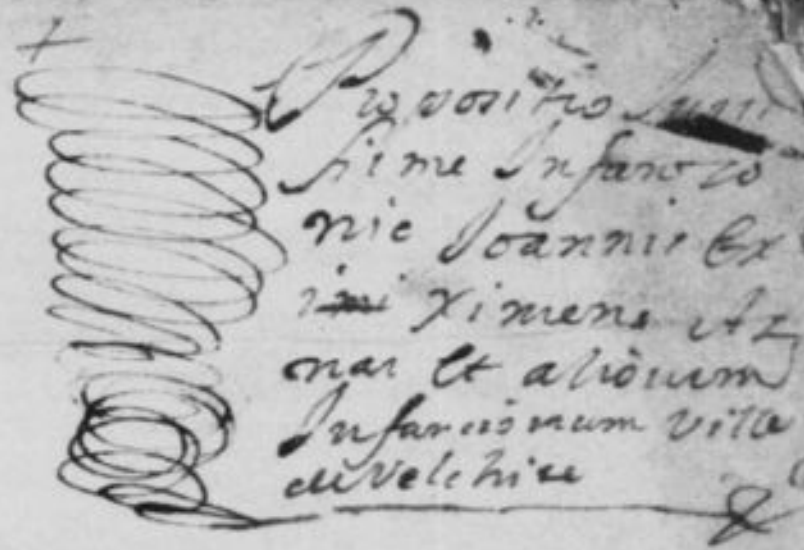 Propositio Juris
firme Infanzo
nie Joannis Ex
imi Ximenez Az
nar et aliorum
Infancionum ville
de Velchite